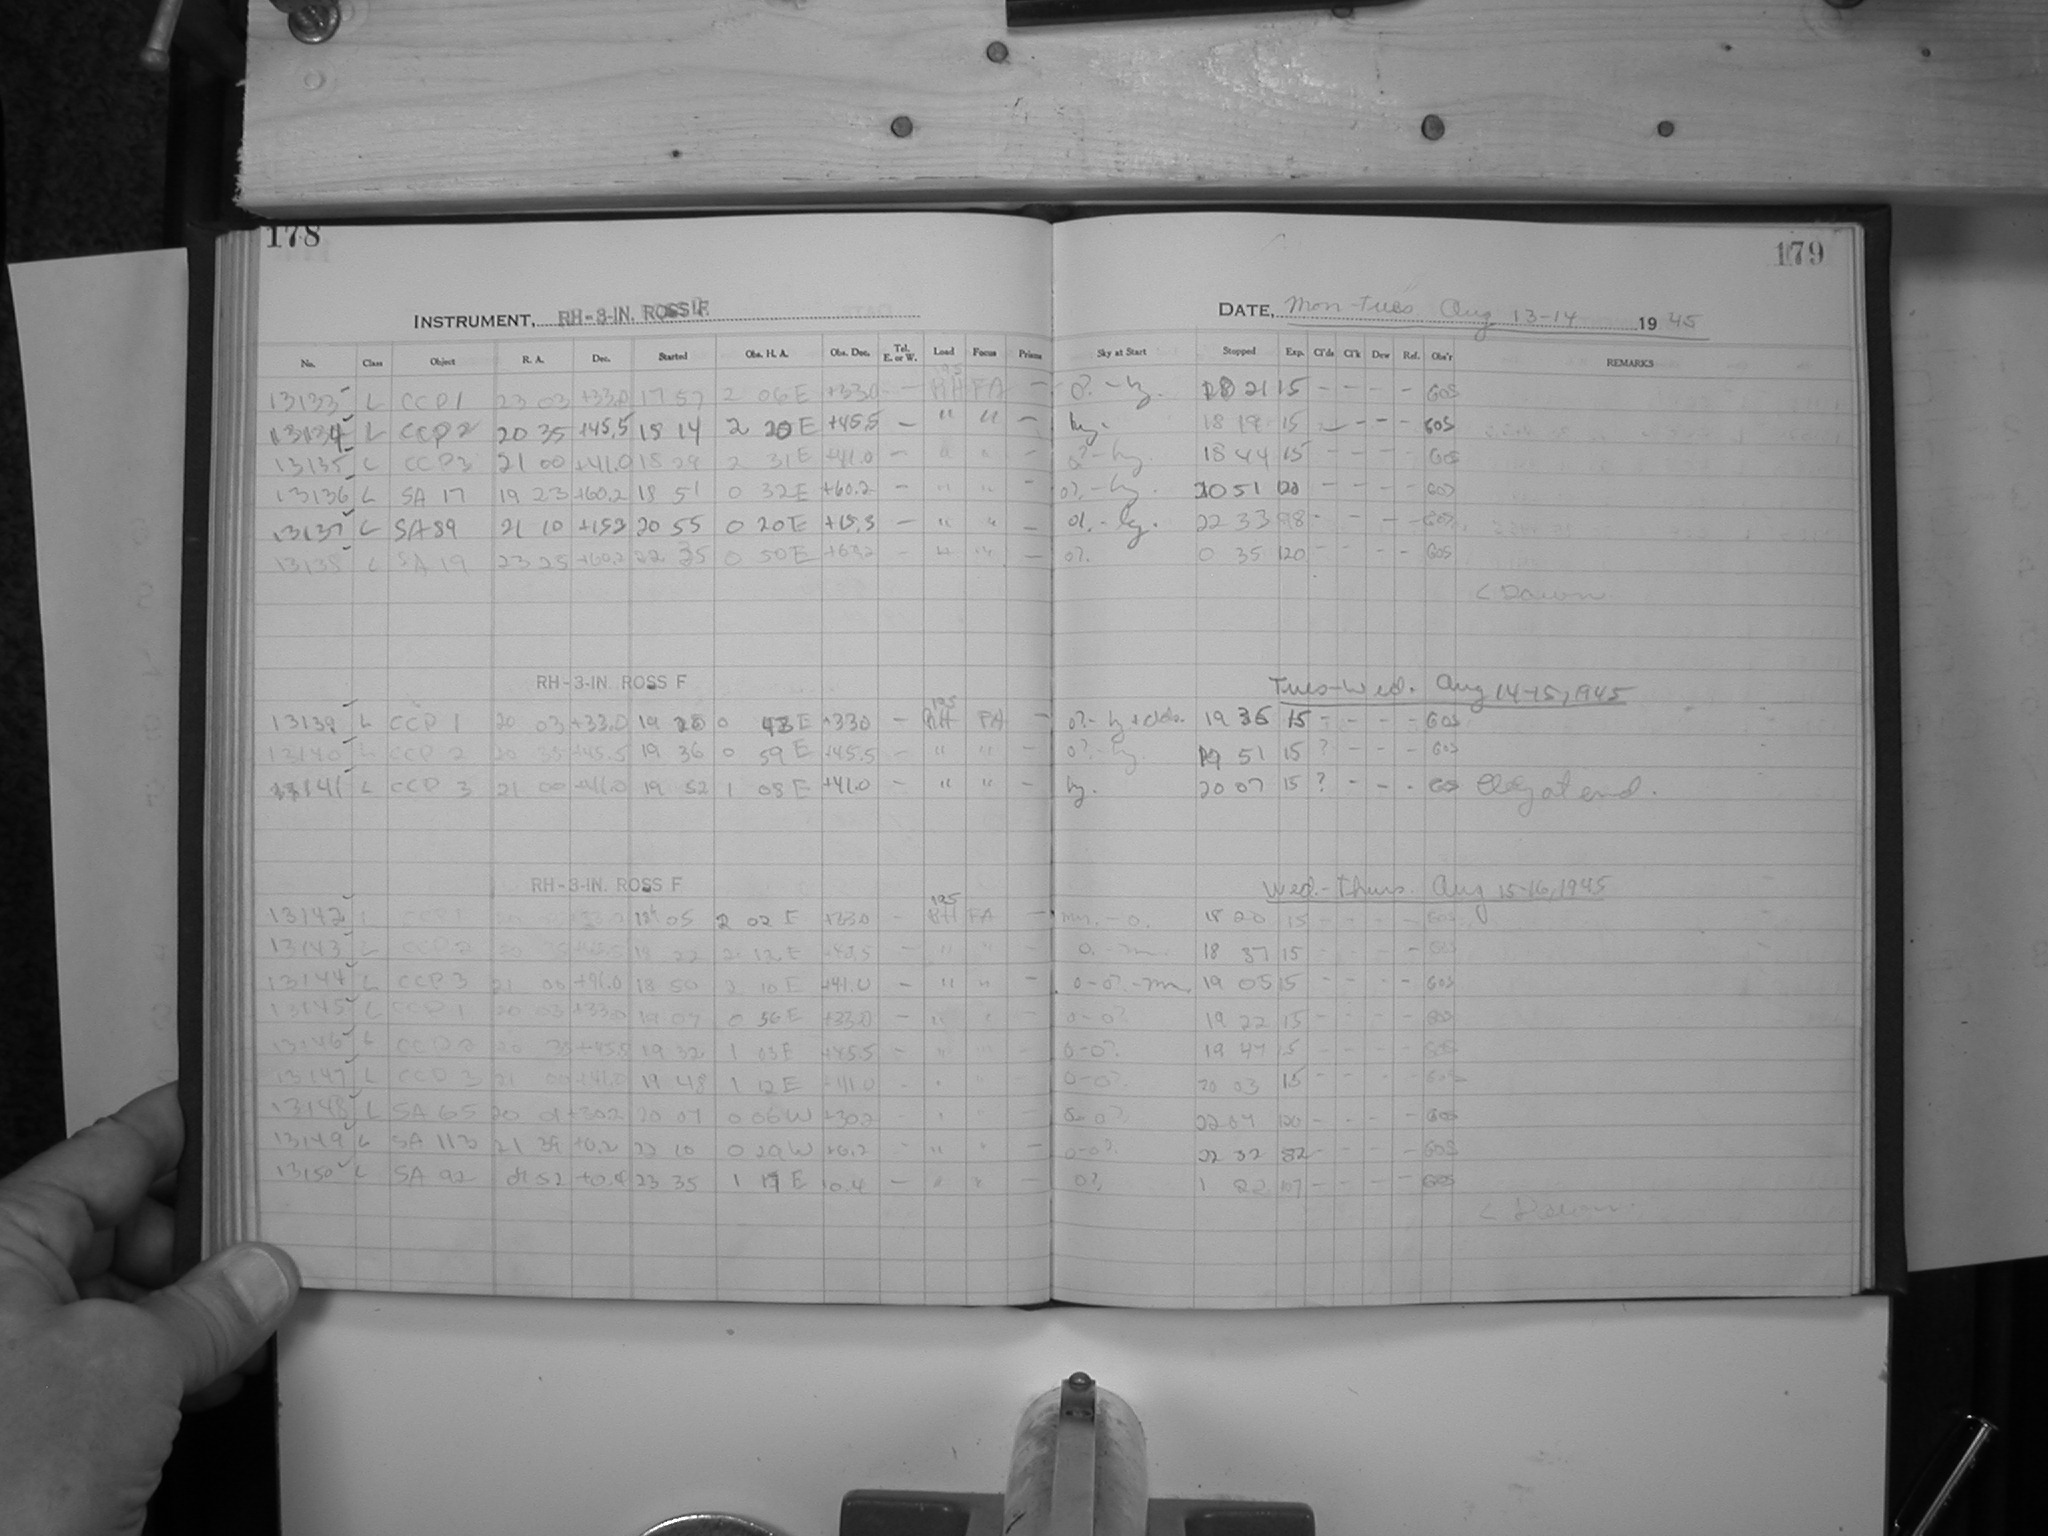 178
179
INSTRUMENT, RH-3-IN. ROSS F
DATE, Mon-Tues Aug 13-14 1945
No. Class Object R. A. Dec. Started Obs. H. A. Obs. Dec. Tel. E. or W. Load Focus Prisms Sky at Start Stopped Exp. Cl'ds Cl'k Dew Ref. Obs'r REMARKS
13133 L CCP 1 23 03 +33.0 17 57 2 06 E +33.0 - RH FA - 0? - hy. 18 21 15 - - - - GOS
13134 L CCP 2 20 35 +45.5 18 14 2 20 E +45.5 - " " - hy. 18 19 15 - - - GOS
13135 L CCP 3 21 00 +41.0 18 29 2 31 E +41.0 - " " - 0? - hy. 18 44 15 - - - - GOS
13136 L SA 17 19 23 +60.2 18 51 0 32 E +60.2 - " " - 0? - hy. 20 51 120 - - - - GOS
13137 L SA 89 21 10 +15.3 20 55 0 20 E +15.3 - " " - 22 33 98 - - - - GOS
13138 L SA 19 23 25 +60.2 22 35 0 50 E - " " - 0? 0 35 120 - - - - GOS
< Dawn.
RH-3-IN. ROSS F
Tues-Wed. Aug 14-15, 1945
13139 L CCP 1 20 03 +33.0 19 20 0 43 E +33.0 - 135 RH FA - 0? - hy + clds. 19 35 15 - - - - GOS
13140 L CCP 2 20 35 +45.5 19 36 0 59 E +45.5 - " " - 0? - hy. 19 51 15 ? - - - GOS
13141 L CCP 3 21 00 +41.0 19 52 1 08 E +41.0 - " " - hy. 20 07 15 ? - - - GOS Cldy at end.
RH-3-IN. ROSS F
Wed.-Thurs. Aug 15-16, 1945
13142 L CCP 1 18 05 2 02 E +33.0 - 135 RH FA - mn. - 0. 18 20 15 - - - - GOS
13143 L CCP 2 20 35 +45.5 18 22 2 12 E +45.5 - " " - 0. - m. 18 37 15 - - - - GOS
13144 L CCP 3 21 00 +41.0 18 50 2 10 E +41.0 - " " - 0 - 0? - mn. 19 05 15 - - - - GOS
13145 L CCP 1 20 03 +33.0 19 07 0 56 E +33.0 - " " - 0 - 0? 19 22 15 - - - - GOS
13146 L CCP 2 20 35 +45.5 19 32 1 03 E +45.5 - " " - 0 - 0? 19 47 15 - - - - GOS
13147 L CCP 3 21 00 +41.0 19 48 1 12 E +41.0 - " " - 0 - 0? 20 03 15 - - - - GOS
13148 L SA 65 20 01 +30.2 20 07 0 06 W +30.2 - " " - 0 - 0? 22 07 120 - - - - GOS
13149 L SA 113 21 39 +0.2 22 10 0 29 W +0.2 - " " - 0 - 0? 22 32 - - - - GOS
13150 L SA 92 52 +0.4 23 35 1 17 E +0.4 - " " - 0? 1 22 107 - - - - GOS
< Dawn.